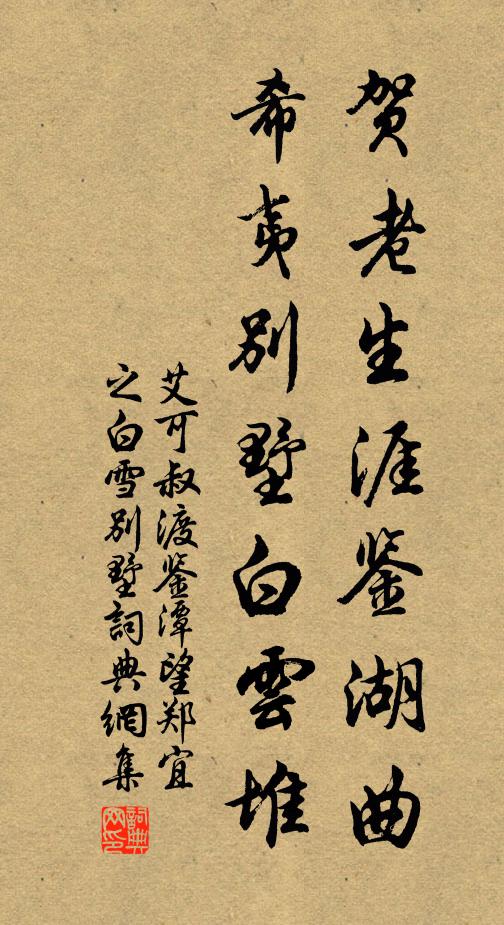 贺老生涯鉴湖曲
希夷别墅白雲堆
艾可叔渡鉴潭望郑宜
之白雪别墅詞典網集
詞典网印